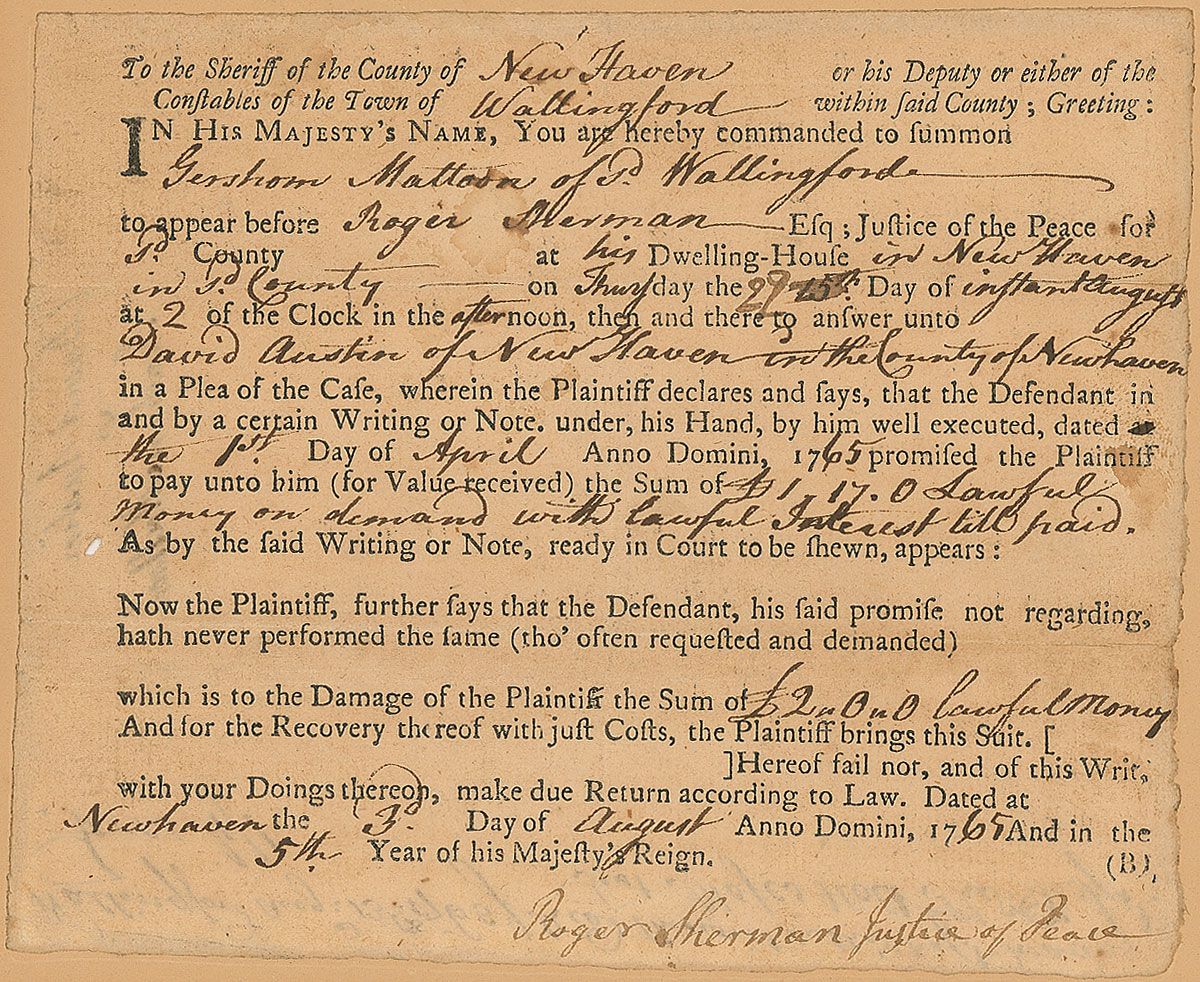 To the Sheriff of the County of New Haven or his Deputy or either of the
Conſtables of the Town of Wallingford within ſaid County; Greeting:
IN HIS MAJESTY'S NAME, You are hereby commanded to ſummon
Gershom Mattoon of sd. Wallingford
to appear before Roger Sherman Eſq; Juſtice of the Peace for
sd. County at his Dwelling-Houſe in New Haven
in sd. County on Thurſday the 29 Day of inſtant August
at 2 of the Clock in the afternoon, then and there to anſwer unto
David Austin of New Haven in the County of Newhaven
in a Plea of the Caſe, wherein the Plaintiff declares and ſays, that the Defendant in
and by a certain Writing or Note. under, his Hand, by him well executed, dated
the 1st. Day of April Anno Domini, 1765 promiſed the Plaintiff
to pay unto him (for Value received) the Sum of £1,,17.0 Lawful
Money on demand with lawful Interest till paid.
As by the ſaid Writing or Note, ready in Court to be ſhewn, appears:
Now the Plaintiff, further ſays that the Defendant, his ſaid promiſe not regarding,
hath never performed the ſame (tho' often requeſted and demanded)
which is to the Damage of the Plaintiff the Sum of £2,,0,,0 lawful Money
And for the Recovery thereof with juſt Coſts, the Plaintiff brings this Suit. [
]Hereof fail not, and of this Writ,
with your Doings thereon, make due Return according to Law. Dated at
Newhaven the 3d. Day of August Anno Domini, 1765 And in the
5th. Year of his Majeſty's Reign. (B)
Roger Sherman Justice of Peace